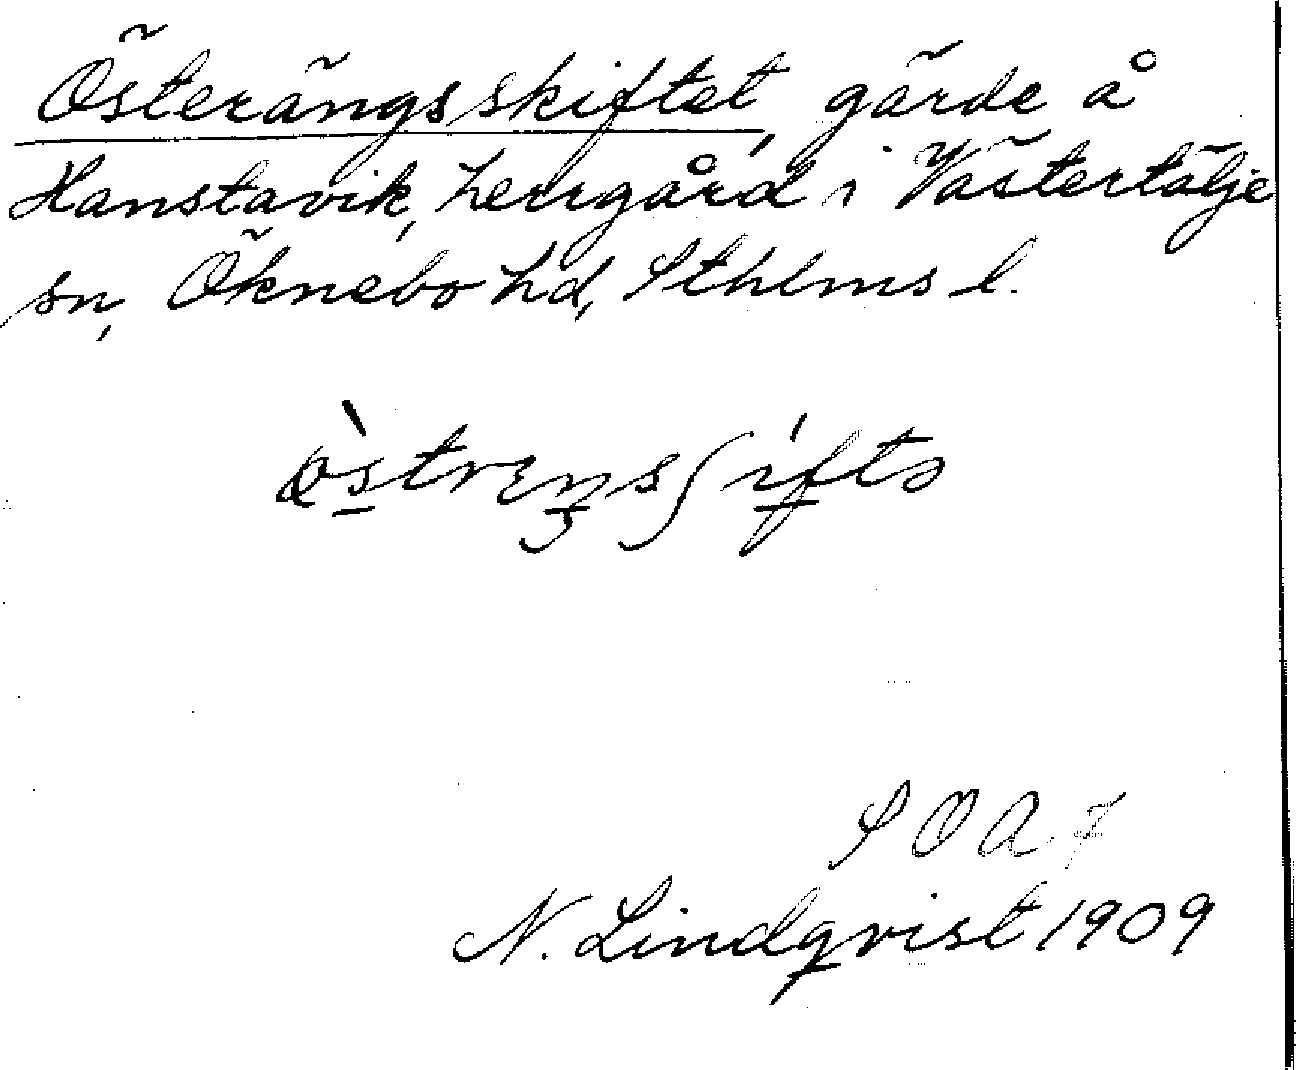 Österängsskiftet, gärde å
Hanstavik, herrgård i Västertälje
sn, Öknebo hd, Sthlms l.
SOA
N. Lindqvist 1909